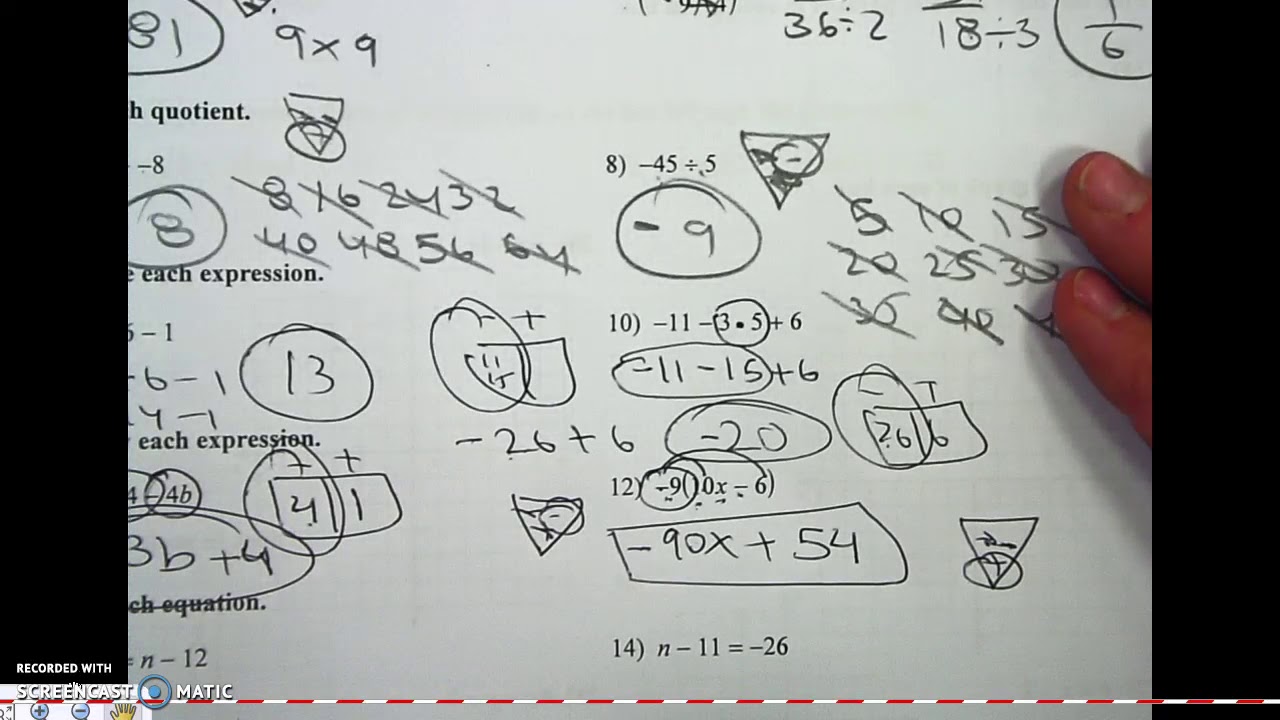 81
9 x 9
36÷2
18÷3
1
6
h quotient.
-8
8 16 24 32
40 48 56 64
8
8) –45 ÷ 5
-
- 9
5 10 15
20 25 30
35 40
e each expression.
– 1
- 6 - 1
4 - 1
13
- +
11
15
10) –11 – (3 • 5) + 6
-11 - 15 + 6
- 26 + 6
-20
- +
26 6
each expression.
4 – 4b
+ +
4 1
3b + 4
12) –9(10x – 6)
- 90x + 54
ch equation.
= n – 12
14) n – 11 = –26
RECORDED WITH
SCREENCAST MATIC